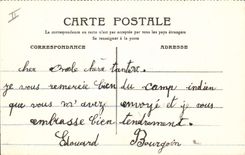 II
CARTE POSTALE
La correspondance au recto n'est pas acceptée par tous les pays étrangers
Se renseigner à la poste
CORRESPONDANCE
ADRESSE
cher oncle chère tante.
je vous remercie bien du camp indien
que vous m'avez envoyé et je vous
embrasse bien tendrement.
Edouard Bourgoin